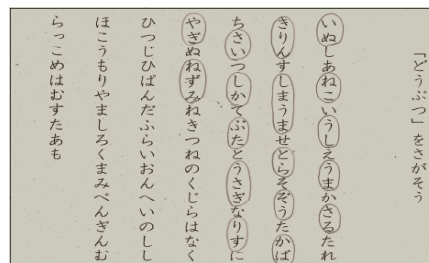 「どうぶつ」をさがそう
いぬしあねこいうしえうまかさるたれ
きりんすしまうませとらそぞうたかば
ちさいつしかてぶたとうさぎなりすに
やぎぬねずみねきつねのくじらはなく
ひつじひぱんだふらいおんへいのしし
ほこうもりやましろくまみぺんぎんむ
らっこめはむすたあも